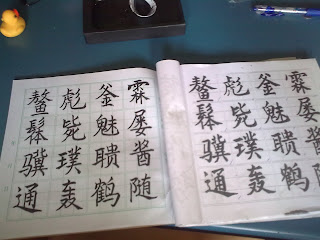 霖屡酱随
釜魅聩鹤
彪毙璞轰
鳌髹骥通
霖屡酱随
釜魅聩鹤
彪毙璞轰
鳌髹骥通